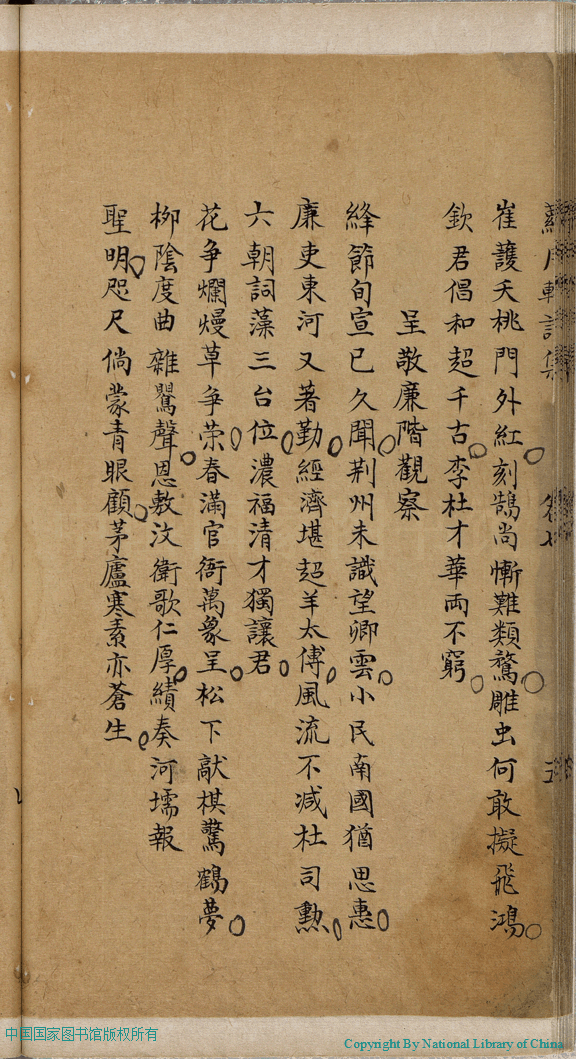 崔護夭桃門外紅刻鵠尚慚難類鶩雕虫何敢擬飛鴻
欽君倡和超千古李杜才華両不窮
呈敬廉階觀察
絳節旬宣已久聞荆州未識望卿雲小民南國猶思惠
廉吏東河又著勤經濟堪超羊太傅風流不减杜司勲
六朝詞藻三台位濃福清才獨讓君
花争爛熳草争荣春滿官衙萬象呈松下敲棋驚鶴夢
柳陰度曲雜鸎聲恩敷汶衛歌仁厚績奏河壖報
聖明咫尺倘蒙青眼顧茅廬寒素亦蒼生
中国国家图书馆版权所有
Copyright By National Library of China